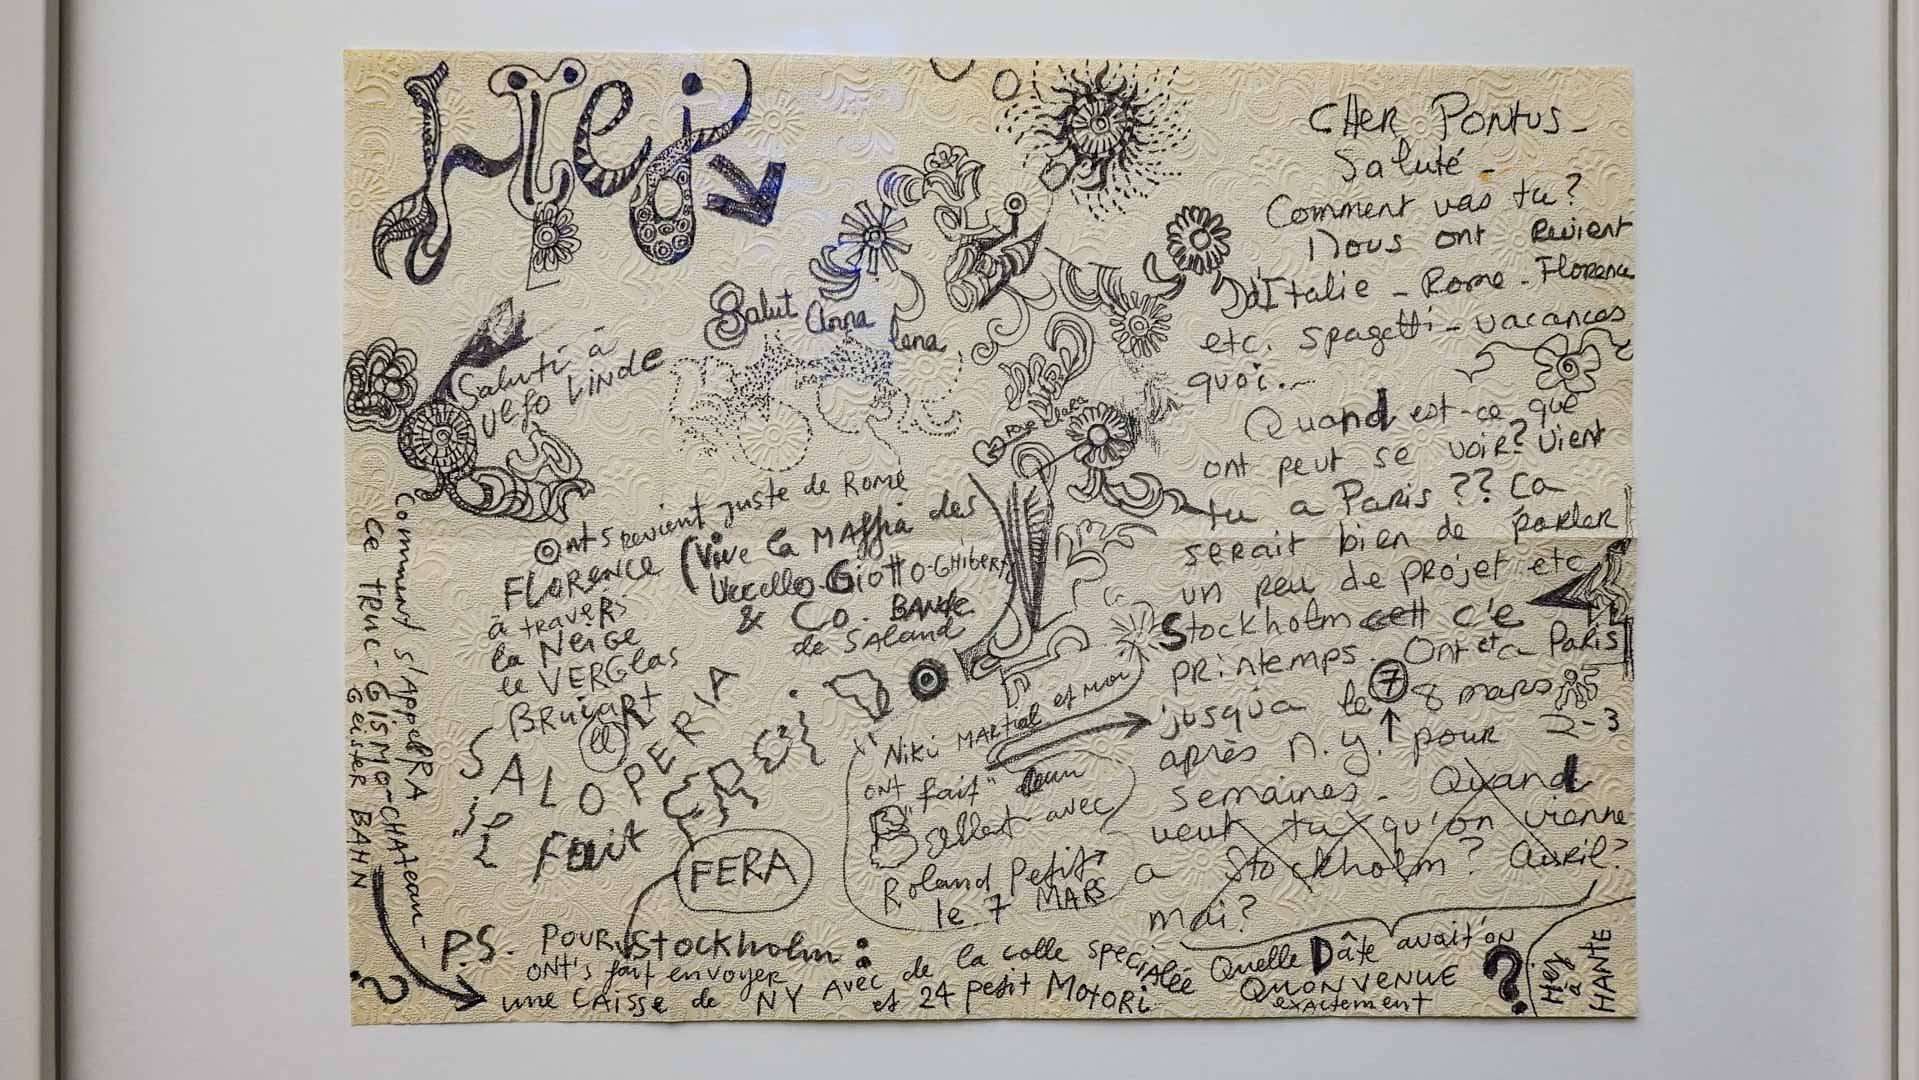 Hej
CHER PONTUS -
Saluté -
Comment vas tu?
Nous ont revient
d'Italie - Rome - Florence
etc. spagetti - vacances
quoi. -
Quand est-ce que
ont peut se voir? Vient
tu a Paris ?? Ça
serait bien de parler
un peu de projet etc
Stockholm c'e
printemps. Ont et a Paris
jusqu'a le 7 8 mars
après N.Y. pour 2-3
semaines - Quand
veut tu qu'on vienne
a Stockholm? Avril?
Mai?
Quelle Dâte avait'on
QUONVENUE
exactement ?
Hej
à
HANTE
Salut Anna
lena
Saluti à
Ulfo LINDE
Onts revient juste de Rome
FLORENCE
à travers
la Neige
le VERGlas
(Vive la MAffia des
Uccello-Giotto-GHiberti
& Co. BANde
de SAland
SALOPERIA
il Fait
FERA
Niki MARtial et moi
ont "fait"
avec
Roland Petit
le 7 MARS
Comment s'AppelRA
ce truc - GISMO - CHAteau -
Geister BAHN
?
P.S. POUR Stockholm :
ONt's fait envoyer
une CAisse de NY AVec de la colle speciAlée
et 24 petit MOtORi